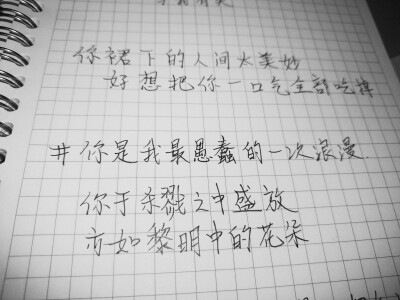 你裙下的人间太美妙
好想把你一口气全部吃掉
#你是我最愚蠢的一次浪漫
你于杀戮之中盛放
亦如黎明中的花朵